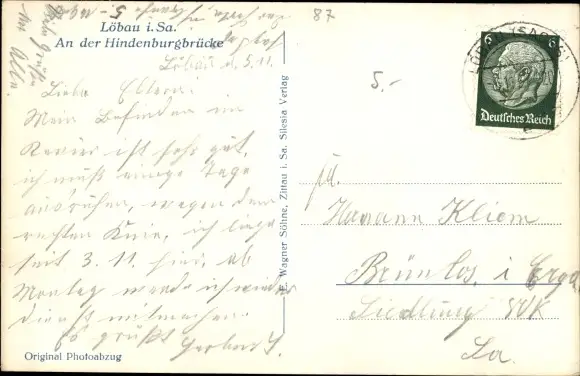 87
Löbau i. Sa.
An der Hindenburgbrücke
Löbau d. 5.11.
Liebe Eltern.
Mein Befinden im
Revier ist sehr gut,
ich muß einige Tage
ausruhen, wegen dem
rechten Knie, ich liege
seit 3.11. hier, ab
Montag werde ich wieder
dienst mitmachen.
Es grüßt
Original Photoabzug
E. Wagner Söhne, Zittau i. Sa. Silesia Verlag
5.-
6 6
Deutsches Reich
Hermann Kliem
Brünlos i. Erzg.
Siedlung
Sa.